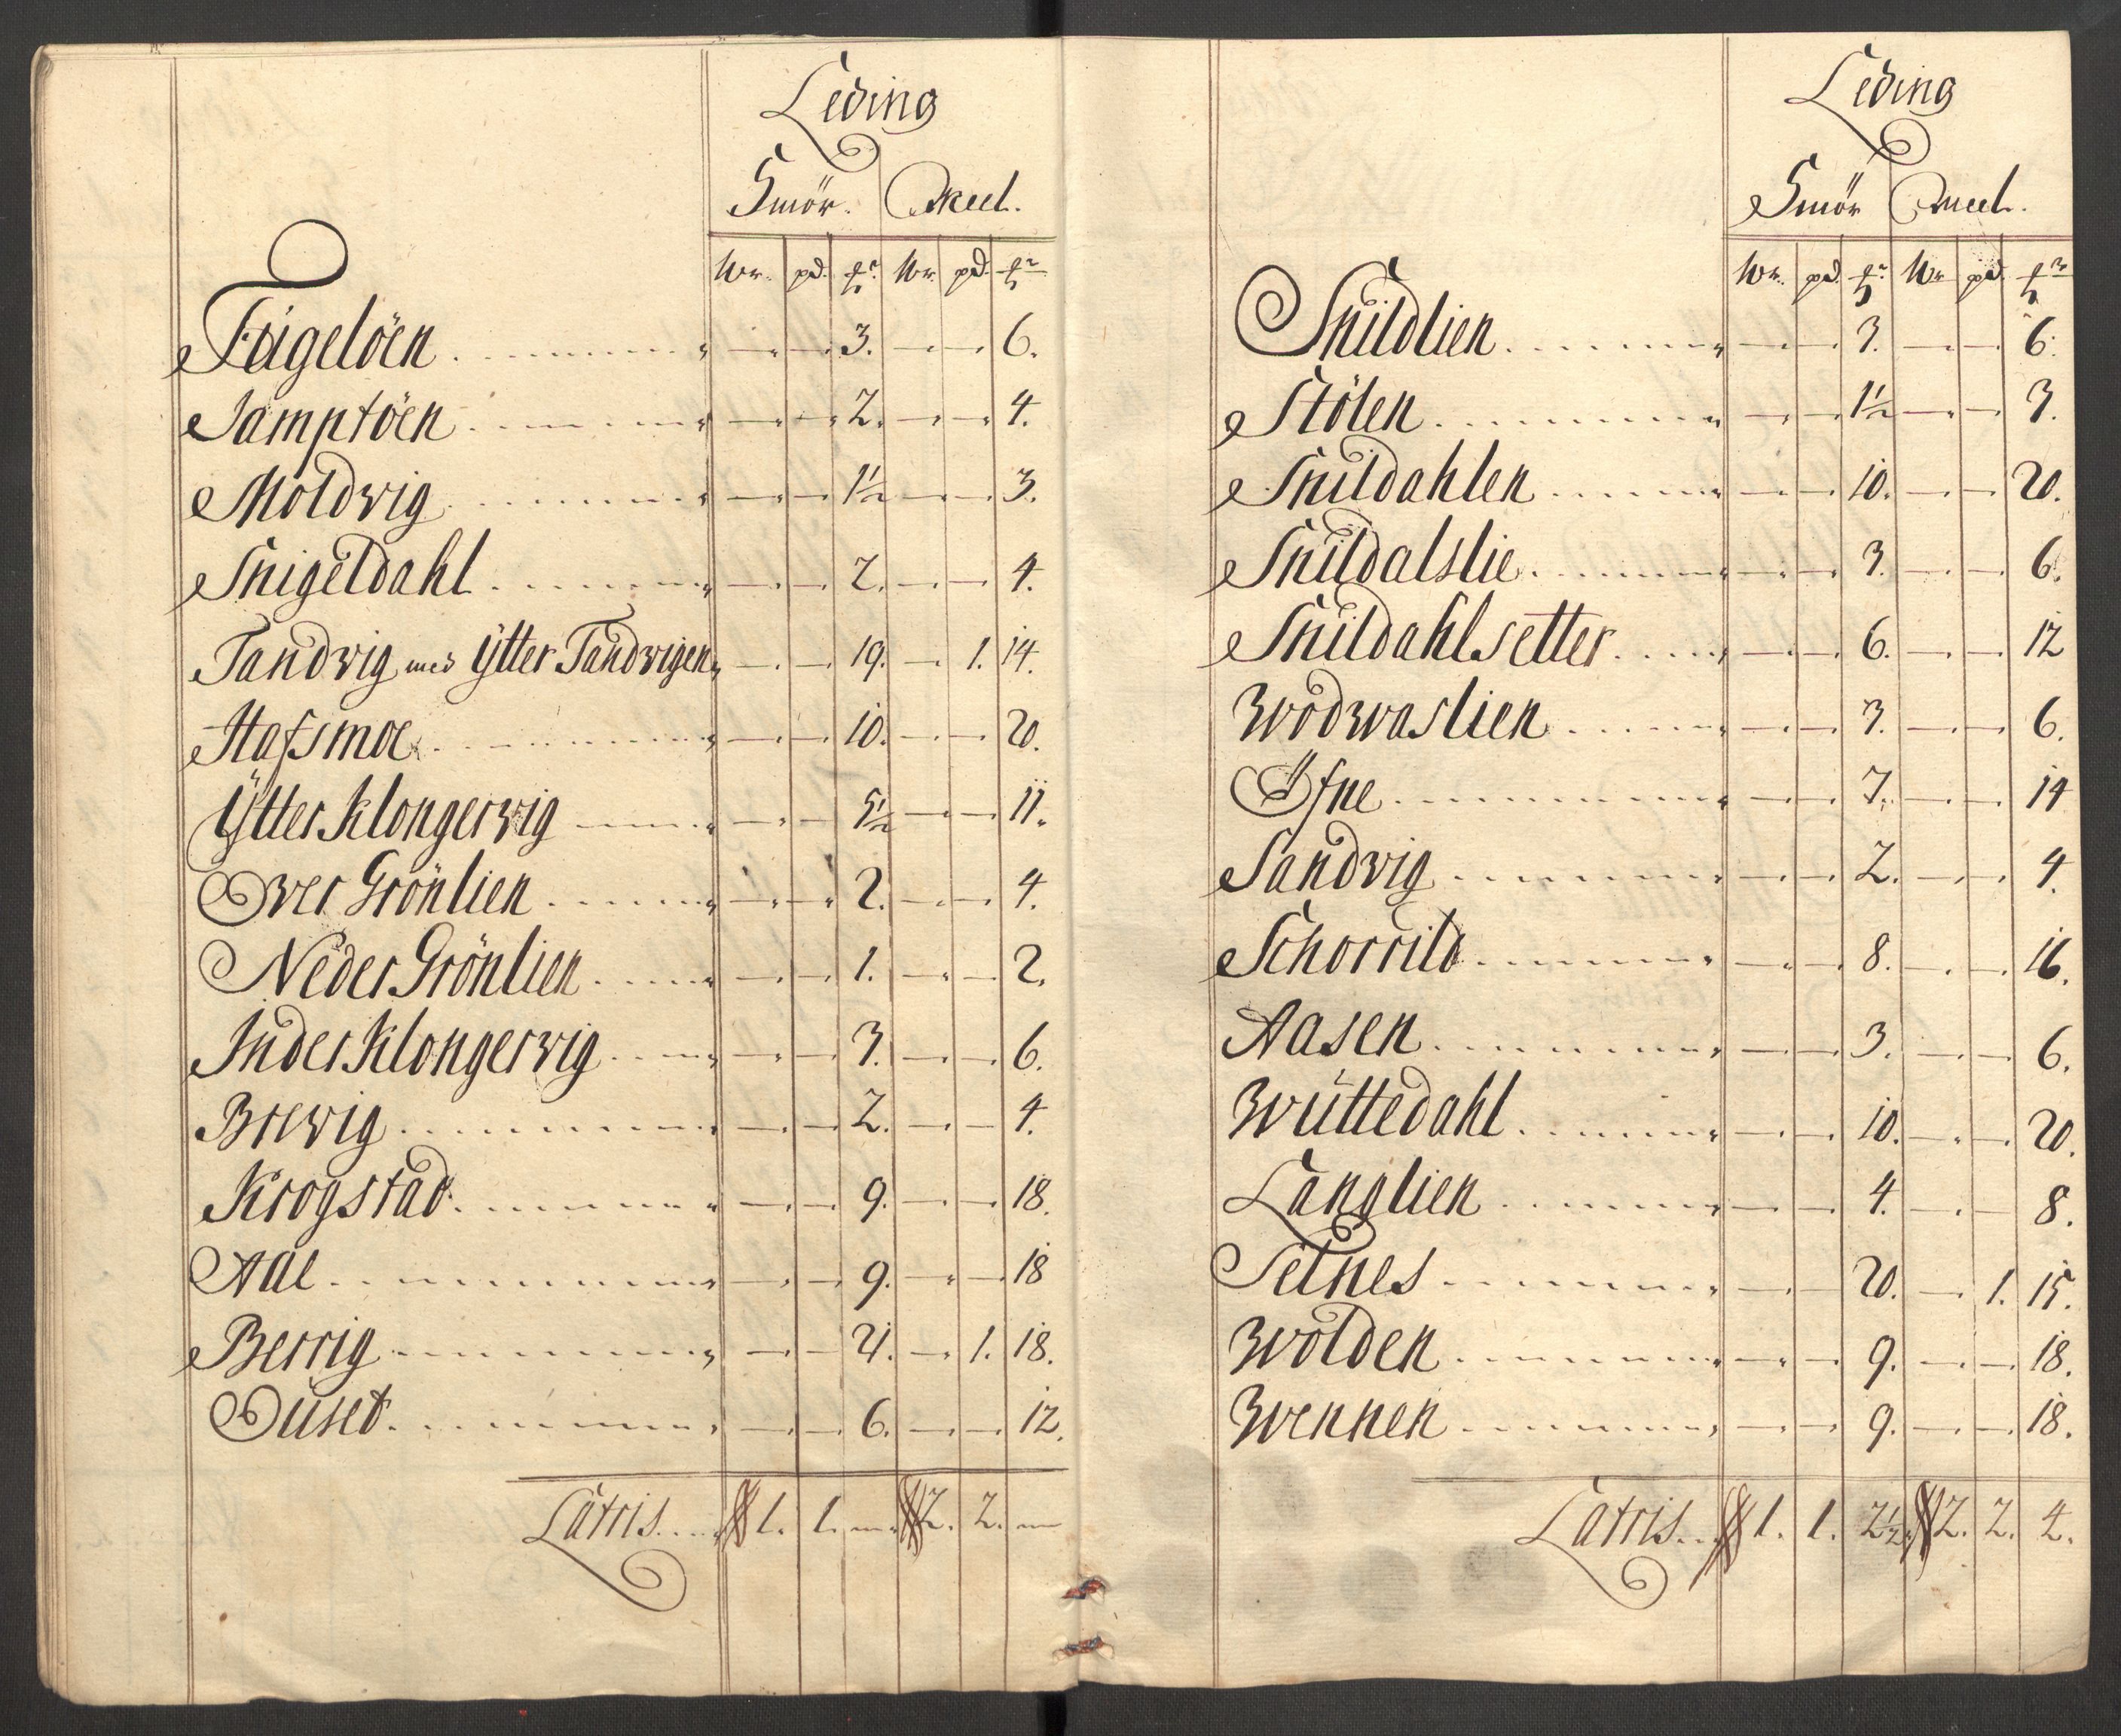 Leding
Smör. Meel.
Wr. pd. ℔. Wr. pd. ℔
Fügelöen . . . 3. 6.
Samptöen . . . 2. 4.
Moldvig . . . 1½ 3.
Snigeldahl . . . 2. 4.
Tandvig med Ytter Tandvigen 19. 1. 14.
Hafsmoe . . . 10. 20.
Ytter Klongervig 5½ 11.
Over Grönlien . . . 2. 4.
Neder Grönlien . . . 1. 2.
Inder Klongervig . . . 3. 6.
Brevig . . . 2. 4.
Krogstad . . . 9. 18.
Aae . . . 9. 18
Berrig . . . 21. 1. 18.
Ouset . . . 6. 12.
Latris . . . 1. 1. 2. 2.
Leding
Smör Meel.
Wr. pd. ℔. Wr. pd. ℔
Snildlien . . . 3. 6.
Stölen . . . 1½ 3.
Snildahlen . . . 10. 20.
Snildalslie . . . 3. 6.
Snildahlsetter . . . 6. 12
Wodwaslien . . . 3. 6.
Öfne . . . 7. 14
Sandvig . . . 2. 4.
Schorrild . . . 8. 16.
Aasen . . . 3. 6.
Wüttedahl . . . 10. 20.
Langlien . . . 4. 8.
Selnes . . . 20. 1. 15.
Wolden . . . 9. 18.
Wennen . . . 9. 18.
Latris . . . 1. 1. 2½ 2. 2. 4.